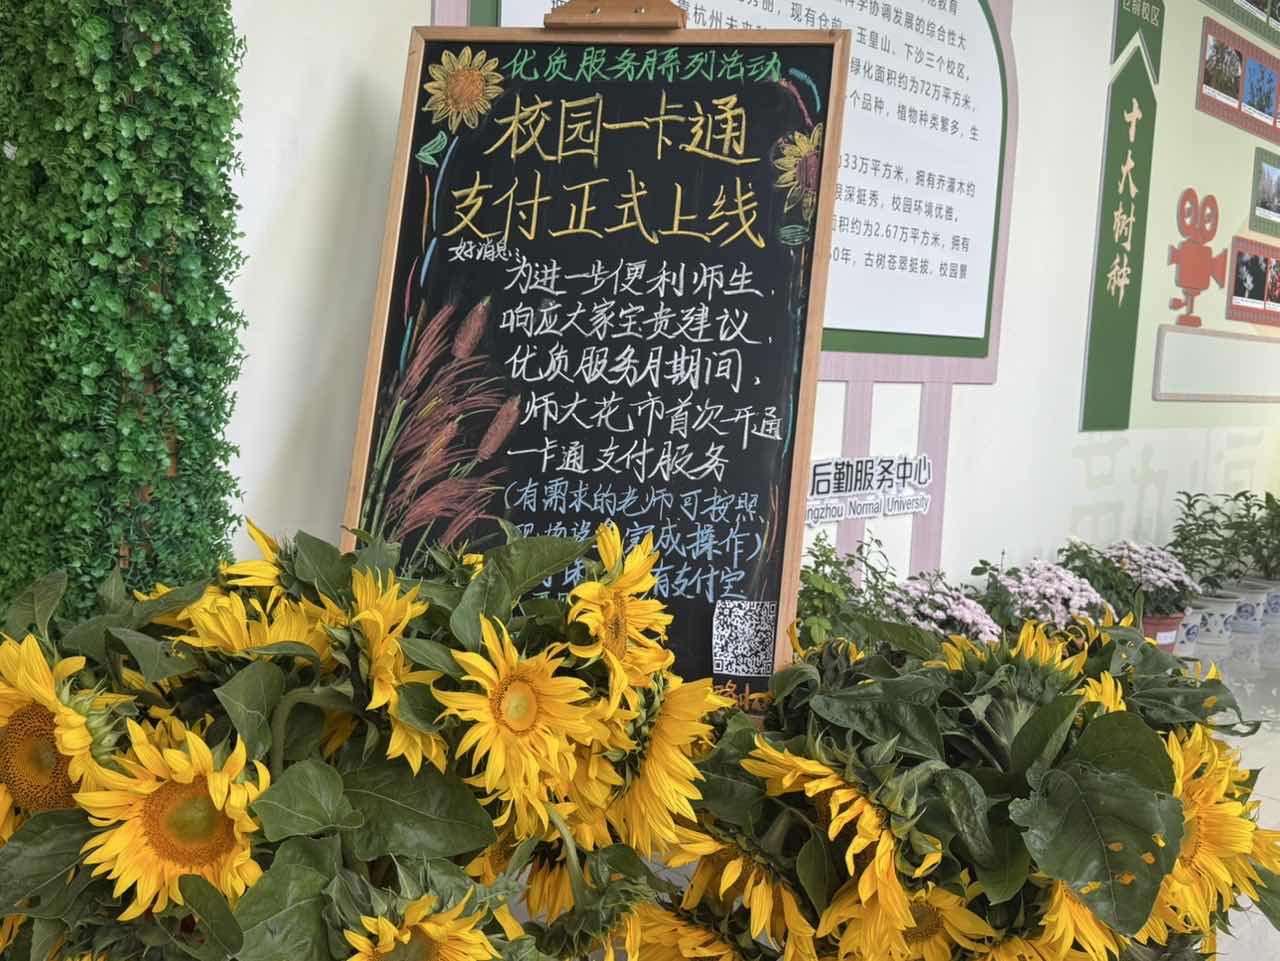 优质服务月系列活动
校园一卡通
支付正式上线
好消息:
为进一步便利师生,
响应大家宝贵建议,
优质服务月期间,
师大花市首次开通
一卡通支付服务
(有需求的老师可按照
完成操作)
有支付宝
现有仓前
科学协调发展的综合性大
玉皇山、下沙三个校区。
绿化面积约为72万平方米,
个品种,植物种类繁多,生
33万平方米,拥有乔灌木约
挺秀,校园环境优雅。
面积约为2.67万平方米,拥有
0年,古树苍翠挺拔,校园景
后勤服务中心
ngzhou Normal University
仓前校区
十大树种